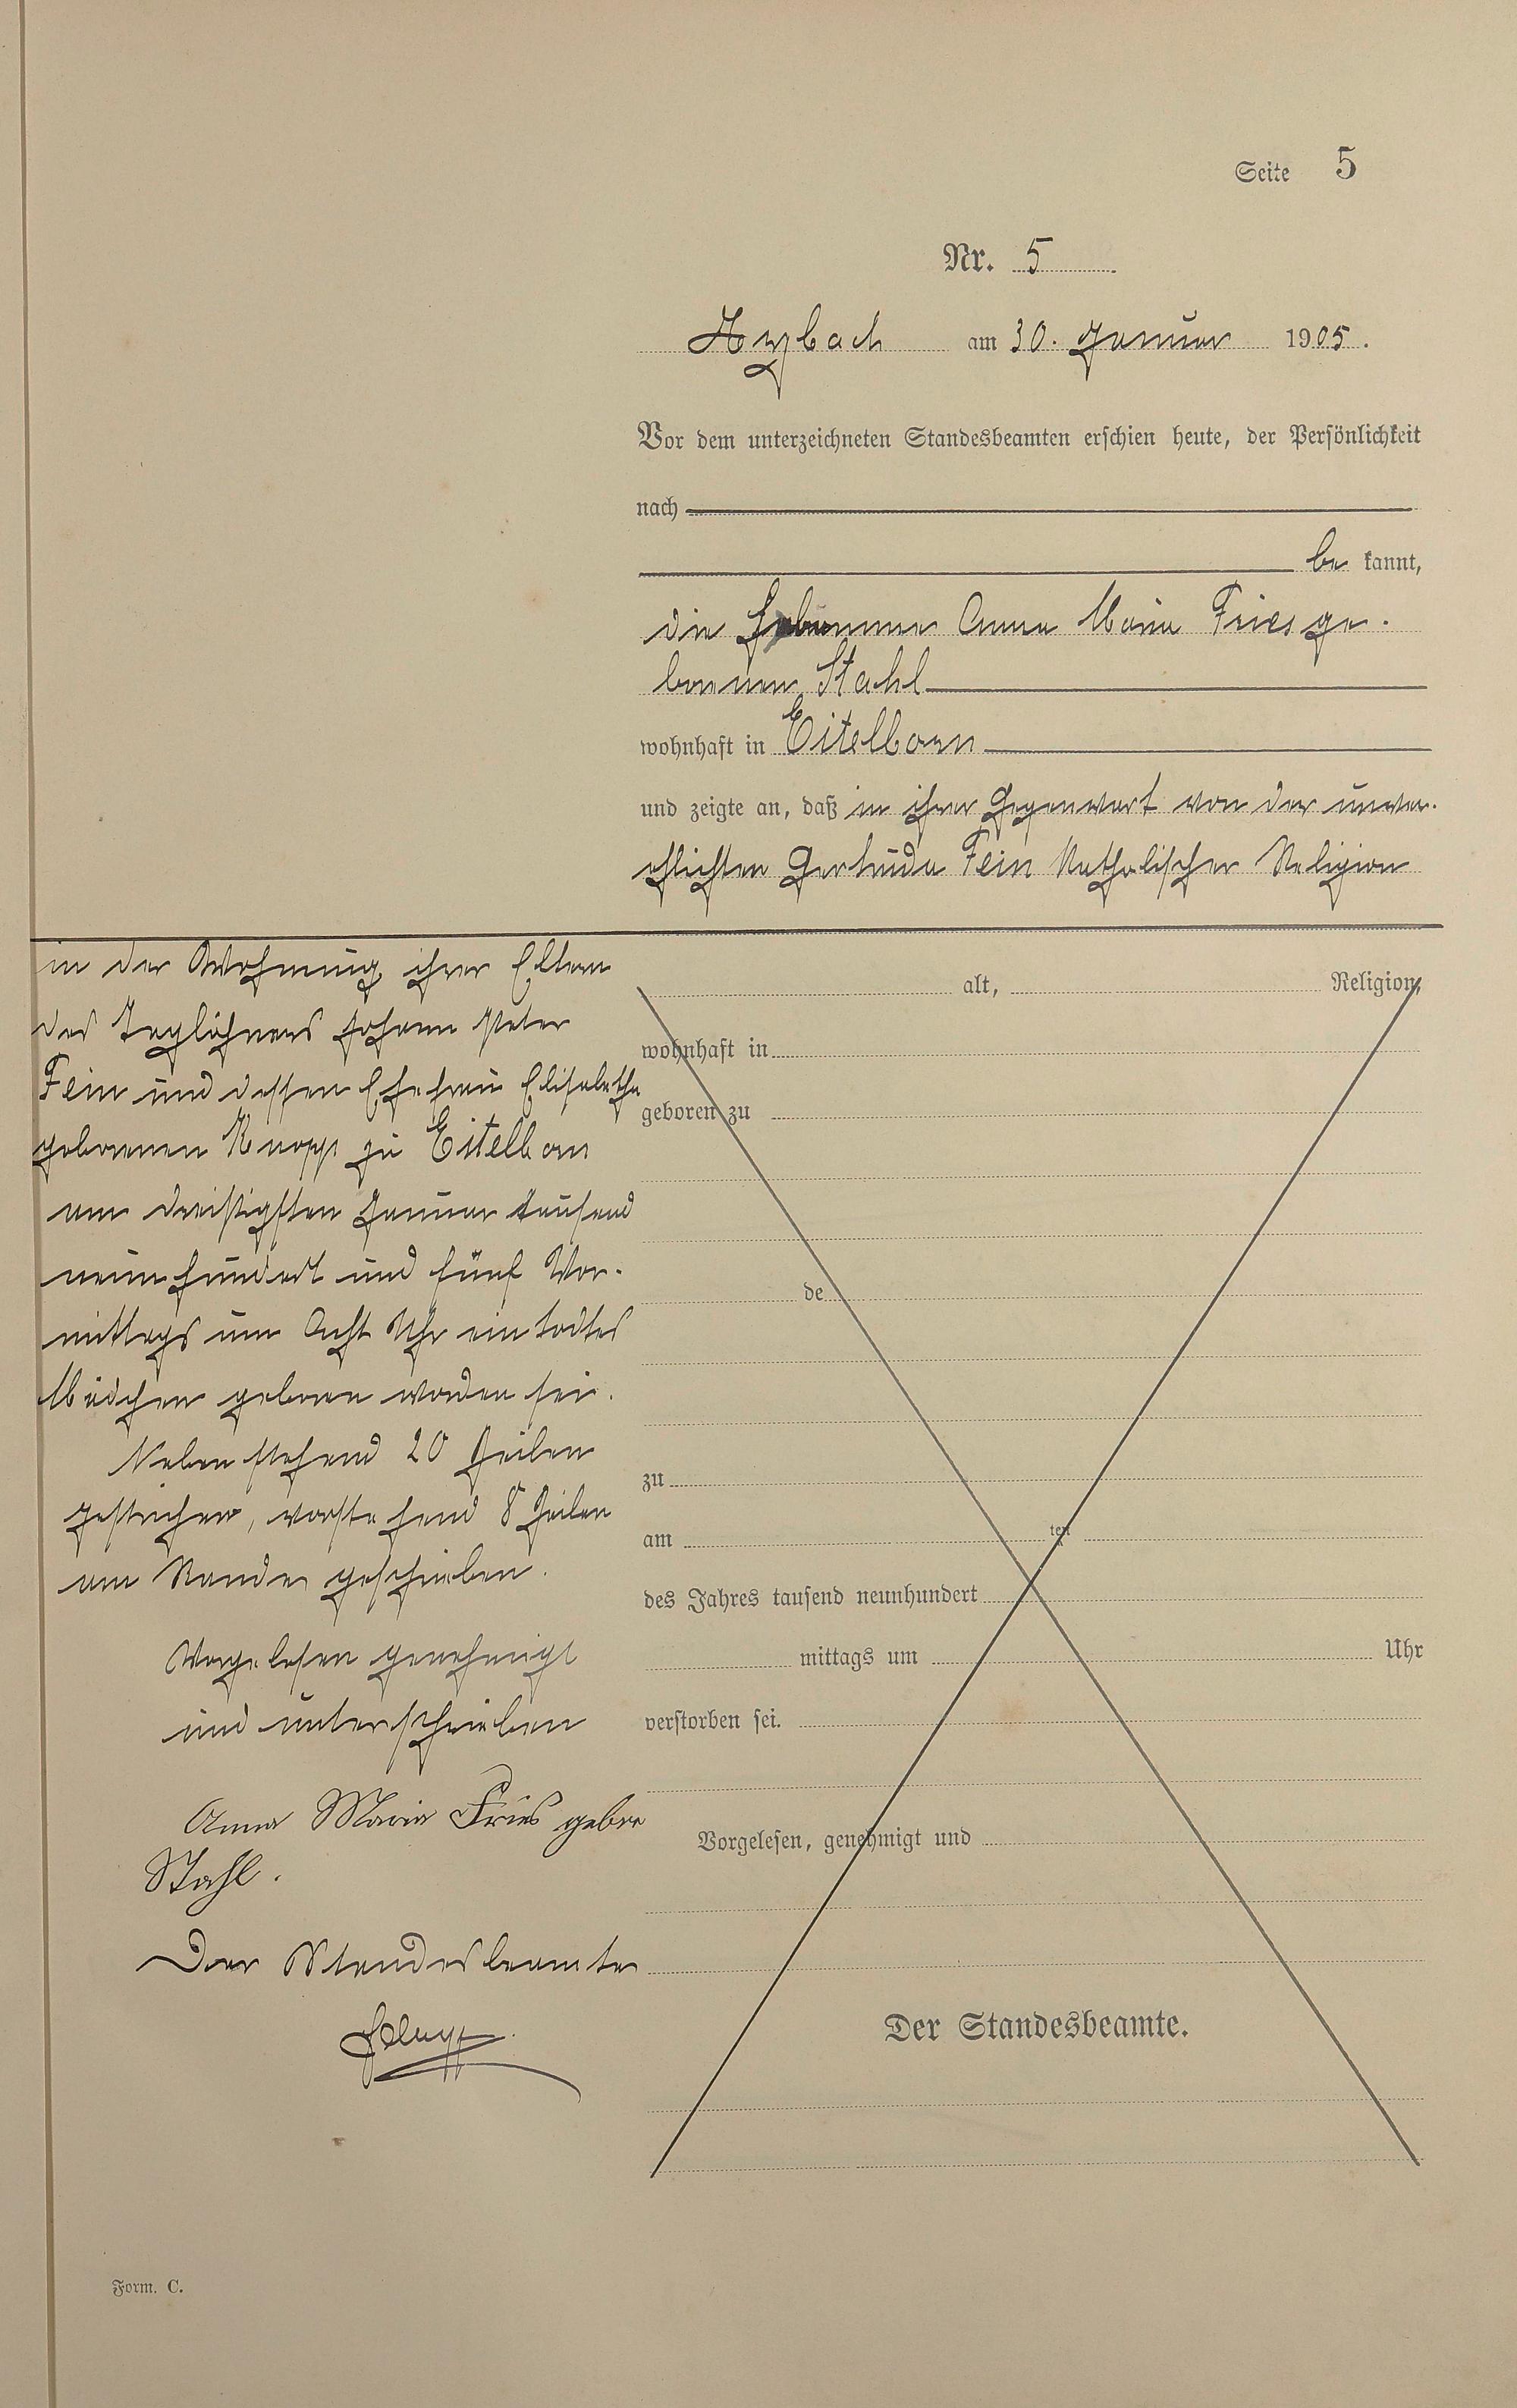 Seite 5
Nr. 5
Arzbach am 30. Januar 1905.
Vor dem unterzeichneten Standesbeamten erschien heute, der Persönlichkeit
nach
be kannt,
die Hebamme Anna Maria Fries ge-
borenen Stahl
wohnhaft in Eitelborn
und zeigte an, daß in ihrer Gegenwart von der unver-
ehlichten Gertruda Fein Katholischer Religion
in der Wohnung ihrer Eltern
des Taglöhners Johann Peter
Fein und dessen Ehefrau Elisabetha
geborenen Knopp zu Eitelborn
am dreißigsten Januar tausend
neunhundert und fünf Vor-
mittags um Acht Uhr ein todtes
Mädchen geboren worden sei.
Nebenstehend 20 Zeilen
gestrichen, vorstehend 8 Zeilen
am Rande geschrieben.
Vorgelesen genehmigt
und unterschrieben
Anna Maria Fries gebor
Stahl.
Der Standesbeamte
alt, Religion,
wohnhaft in
geboren zu
de
zu
am ten
des Jahres tausend neunhundert
mittags um Uhr
verstorben sei.
Vorgelesen, genehmigt und
Der Standesbeamte.
Form. C.